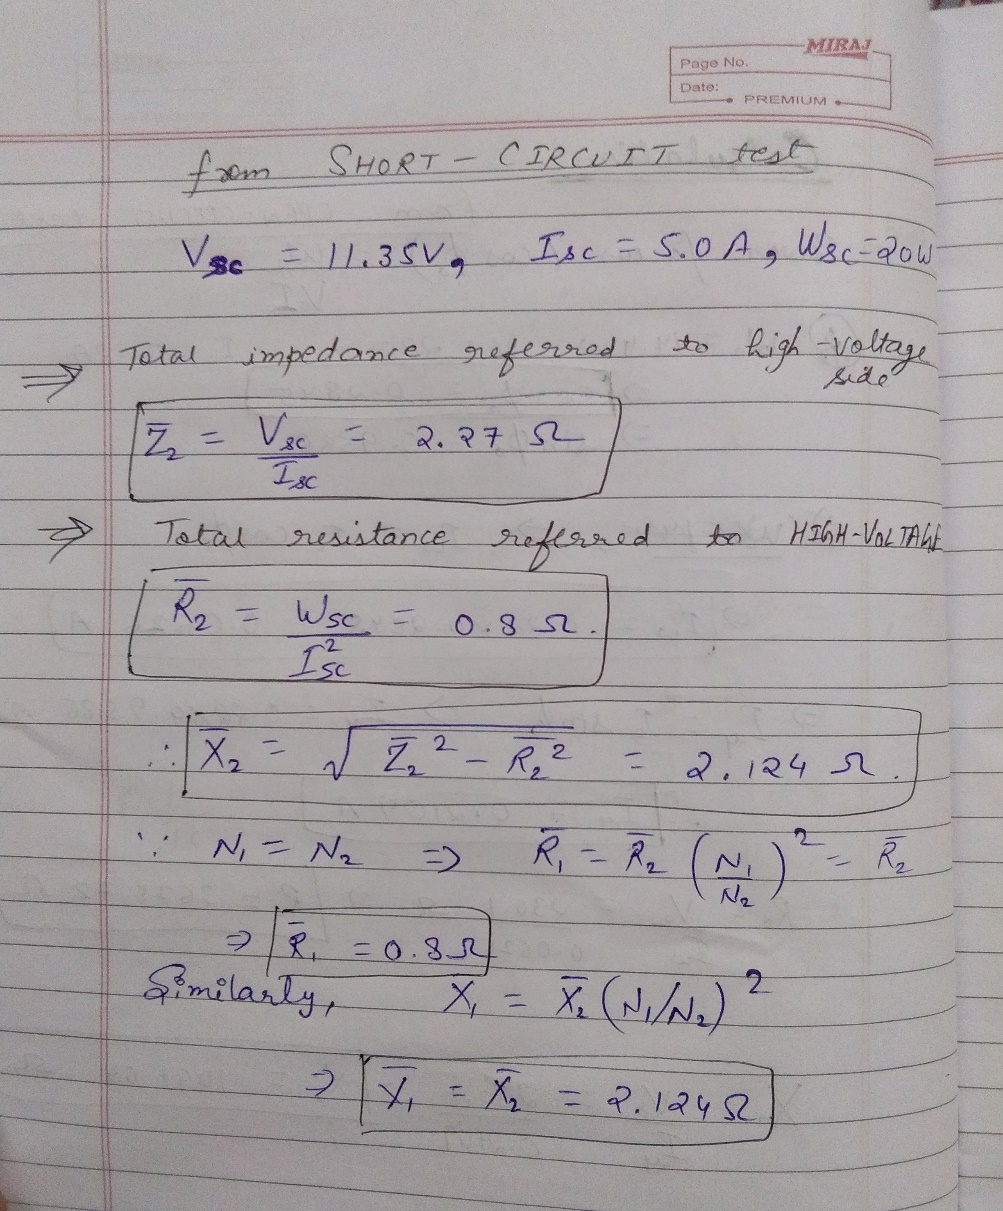 MIRAJ
Page No.
Date:
PREMIUM
from SHORT - CIRCUIT test
Vsc = 11.35V, Isc = 5.0 A, Wsc=20W
⇒ Total impedance referred to high-voltage
side
Z̅₂ = Vsc/Isc = 2.27 Ω
⇒ Total resistance referred to HIGH-VOLTAGE
R̅₂ = Wsc/I²sc = 0.8 Ω.
∴ X̅₂ = √(Z̅₂² - R̅₂²) = 2.124 Ω.
∵ N₁ = N₂ ⇒ R̅₁ = R̅₂ (N₁/N₂)² = R̅₂
⇒ R̅₁ = 0.8Ω
Similarly, X̅₁ = X̅₂ (N₁/N₂)²
⇒ X̅₁ = X̅₂ = 2.124Ω